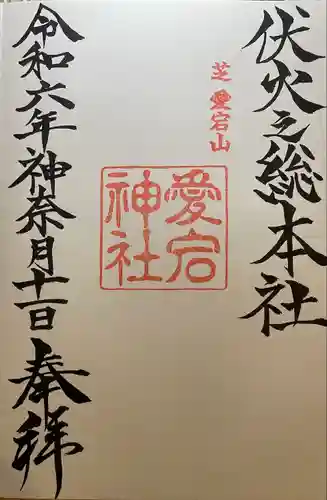 伏火之総本社
芝 愛宕山
愛宕神社
令和六年神奈月十一日 奉拝